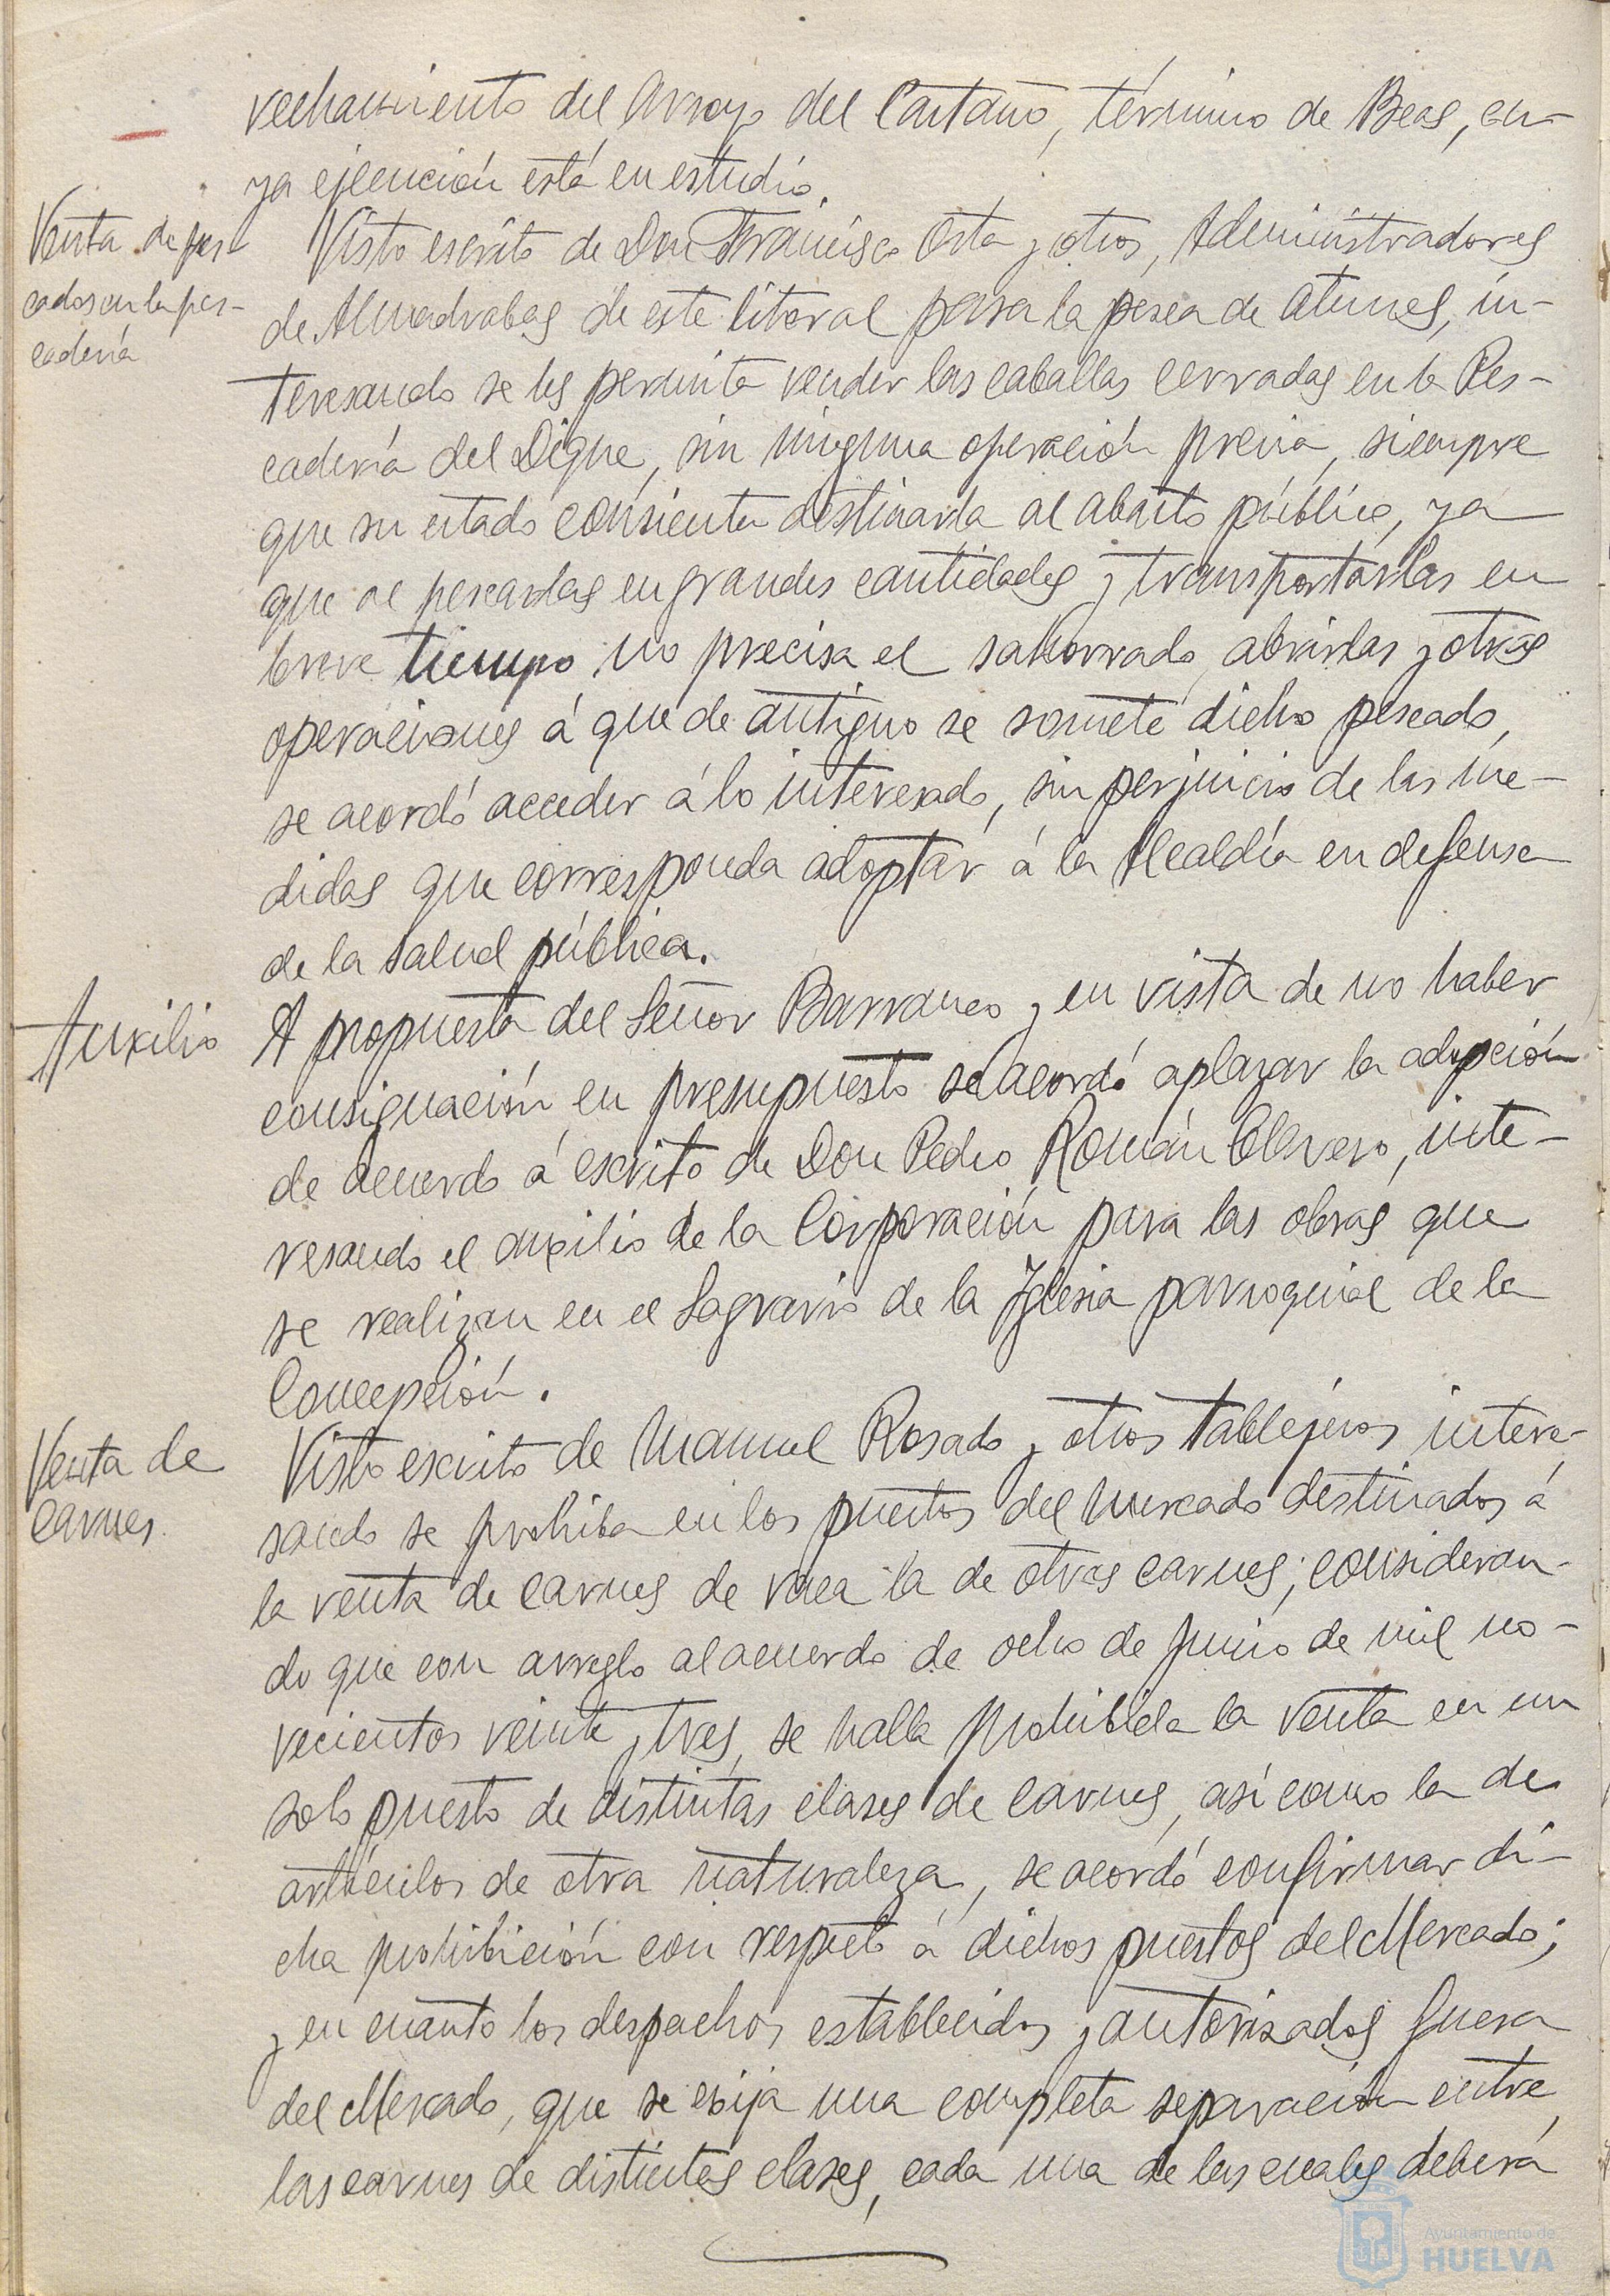 vechamiento del Arroyo del Castaño, término de Beas, cu-
ya ejecución está en estudio.
Venta de pes-
cados en la pes-
cadería
Visto escrito de Don Francisco Orta y otros, Administradores
de Almadrabas de este litoral para la pesca de atunes, in-
teresando se les permita vender las caballas cerradas en la Pes-
cadería del Dique, sin ninguna operación previa, siempre
que su estado consienta destinarla al abasto público, ya
que al pescarlas en grandes cantidades y transportarlas en
breve tiempo no precisa el salmorrado, abrirlas y otras
operaciones á que de antiguo se somete dicho pescado,
se acordó acceder á lo interesado, sin perjuicio de las me-
didas que corresponda adoptar á la Alcaldía en defensa
de la salud pública.
Auxilio
A propuesta del Señor Barranco y en vista de no haber
consignación en presupuesto se acordó aplazar la adopción
de acuerdo á escrito de Don Pedro Román Clavero, inte-
resando el auxilio de la Corporación para las obras que
se realizan en el Sagrario de la Iglesia parroquial de la
Concepción.
Venta de
Carnes.
Visto escrito de Manuel Rosado y otros tablejeros intere-
sando se prohiba en los puestos del Mercado destinados á
la venta de carnes de vaca la de otras carnes; consideran-
do que con arreglo al acuerdo de ocho de Junio de mil no-
vecientos veinte y tres, se halla prohibida la venta en un
solo puesto de distintas clases de carnes, así como la de
artículos de otra naturaleza, se acordó confirmar di-
cha prohibición con respecto á dichos puestos del Mercado;
y en cuanto los despachos establecidos y autorizados fuera
del Mercado, que se exija una completa separación entre
las carnes de distintas clases, cada una de las cuales deberá
Ayuntamiento de
HUELVA